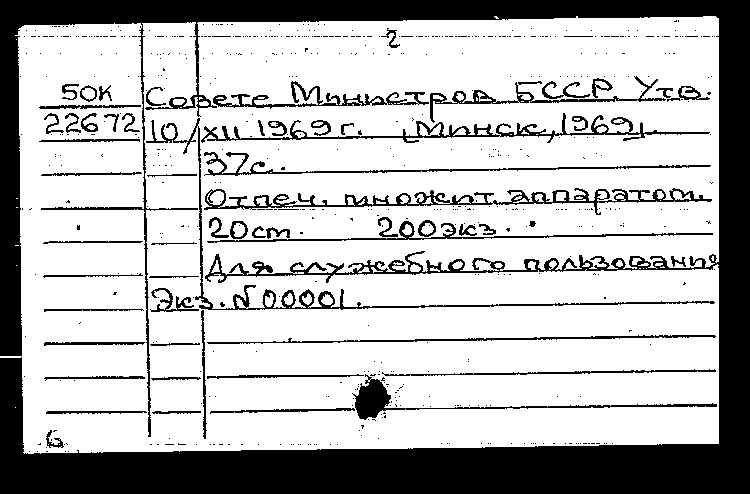 2
50К Совете Министров БССР. Утв.
22672 10/XII 1969 г. [Минск, 1969].
37с.
Отпеч. множит. аппаратом.
20см. 200экз.
Для служебного пользования
Экз. №00001.
6